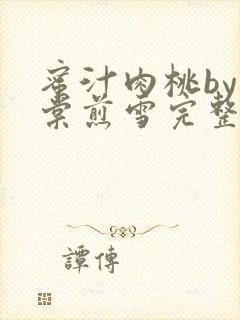 蜜汁肉桃by
棠煎雪完整
譚傳